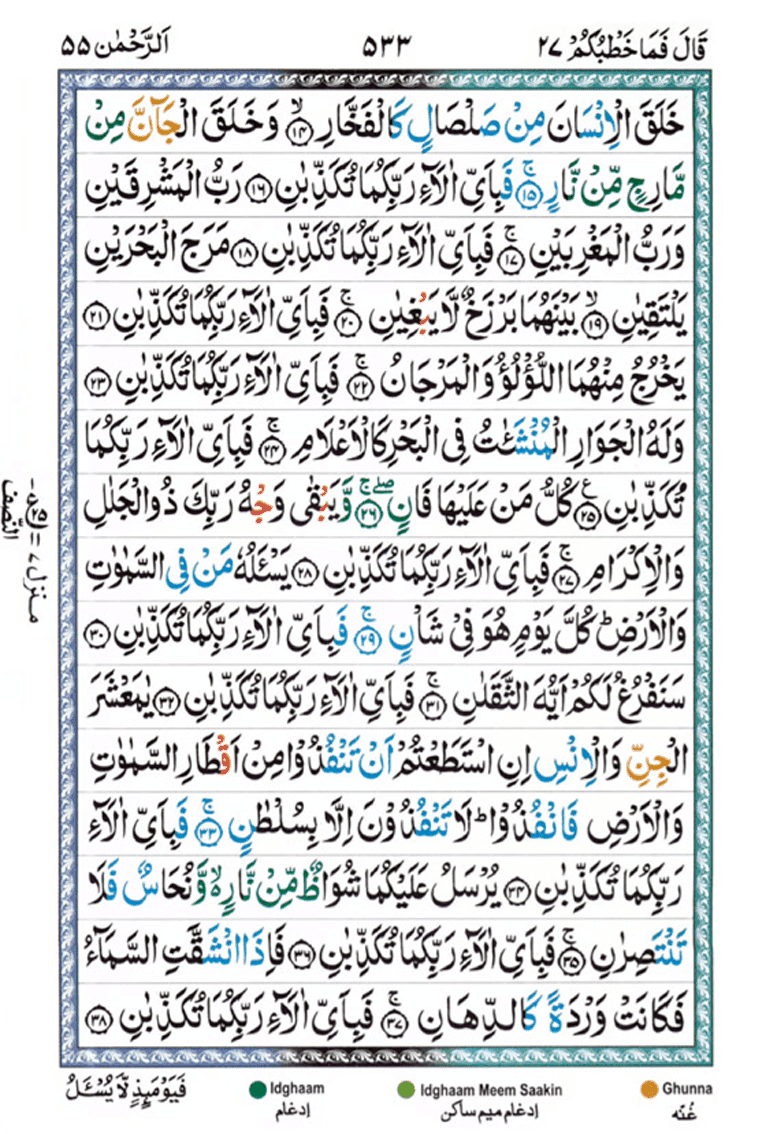 قَالَ فَمَا خَطْبُكُمْ ٢٧ ٥٣٣ اَلرَّحْمٰن ٥٥
خَلَقَ الْاِنْسَانَ مِنْ صَلْصَالٍ كَالْفَخَّارِ ۙ‏﴿۱۴﴾ وَخَلَقَ الْجَآنَّ مِنْ
مَّارِجٍ مِّنْ نَّارٍ ۚ‏﴿۱۵﴾ فَبِاَىِّ اٰلَآءِ رَبِّكُمَا تُكَذِّبٰنِ ‏﴿۱۶﴾ رَبُّ الْمَشْرِقَيْنِ
وَرَبُّ الْمَغْرِبَيْنِ ۚ‏﴿۱۷﴾ فَبِاَىِّ اٰلَآءِ رَبِّكُمَا تُكَذِّبٰنِ ‏﴿۱۸﴾ مَرَجَ الْبَحْرَيْنِ
يَلْتَقِيٰنِ ۙ‏﴿۱۹﴾ بَيْنَهُمَا بَرْزَخٌ لَّا يَبْغِيٰنِ ۚ‏﴿۲۰﴾ فَبِاَىِّ اٰلَآءِ رَبِّكُمَا تُكَذِّبٰنِ ‏﴿۲۱﴾
يَخْرُجُ مِنْهُمَا اللُّؤْلُؤُ وَالْمَرْجَانُ ۚ‏﴿۲۲﴾ فَبِاَىِّ اٰلَآءِ رَبِّكُمَا تُكَذِّبٰنِ ‏﴿۲۳﴾
وَلَهُ الْجَوَارِ الْمُنْشَئٰتُ فِى الْبَحْرِ كَالْاَعْلَامِ ۚ‏﴿۲۴﴾ فَبِاَىِّ اٰلَآءِ رَبِّكُمَا
تُكَذِّبٰنِ ‏﴿۲۵﴾ ع كُلُّ مَنْ عَلَيْهَا فَانٍ ۚۖ‏﴿۲۶﴾ وَّيَبْقٰى وَجْهُ رَبِّكَ ذُو الْجَلٰلِ
وَالْاِكْرَامِ ۚ‏﴿۲۷﴾ فَبِاَىِّ اٰلَآءِ رَبِّكُمَا تُكَذِّبٰنِ ‏﴿۲۸﴾ يَسْئَلُهٗ مَنْ فِى السَّمٰوٰتِ
وَالْاَرْضِ ؕ كُلَّ يَوْمٍ هُوَ فِىْ شَاْنٍ ۚ‏﴿۲۹﴾ فَبِاَىِّ اٰلَآءِ رَبِّكُمَا تُكَذِّبٰنِ ‏﴿۳۰﴾
سَنَفْرُغُ لَكُمْ اَيُّهَ الثَّقَلٰنِ ۚ‏﴿۳۱﴾ فَبِاَىِّ اٰلَآءِ رَبِّكُمَا تُكَذِّبٰنِ ‏﴿۳۲﴾ يٰمَعْشَرَ
الْجِنِّ وَالْاِنْسِ اِنِ اسْتَطَعْتُمْ اَنْ تَنْفُذُوْا مِنْ اَقْطَارِ السَّمٰوٰتِ
وَالْاَرْضِ فَانْفُذُوْا ؕ لَا تَنْفُذُوْنَ اِلَّا بِسُلْطٰنٍ ۚ‏﴿۳۳﴾ فَبِاَىِّ اٰلَآءِ
رَبِّكُمَا تُكَذِّبٰنِ ‏﴿۳۴﴾ يُرْسَلُ عَلَيْكُمَا شُوَاظٌ مِّنْ نَّارٍ ۙ وَّنُحَاسٌ فَلَا
تَنْتَصِرٰنِ ۚ‏﴿۳۵﴾ فَبِاَىِّ اٰلَآءِ رَبِّكُمَا تُكَذِّبٰنِ ‏﴿۳۶﴾ فَاِذَا انْشَقَّتِ السَّمَآءُ
فَكَانَتْ وَرْدَةً كَالدِّهَانِ ۚ‏﴿۳۷﴾ فَبِاَىِّ اٰلَآءِ رَبِّكُمَا تُكَذِّبٰنِ ‏﴿۳۸﴾
النّصف
منزل ٧
Ghunna Idghaam Meem Saakin Idghaam فَيَوْمَىِٕذٍ لَّا يُسْئَلُ
غُنّه إدغام ميم ساكن إدغام